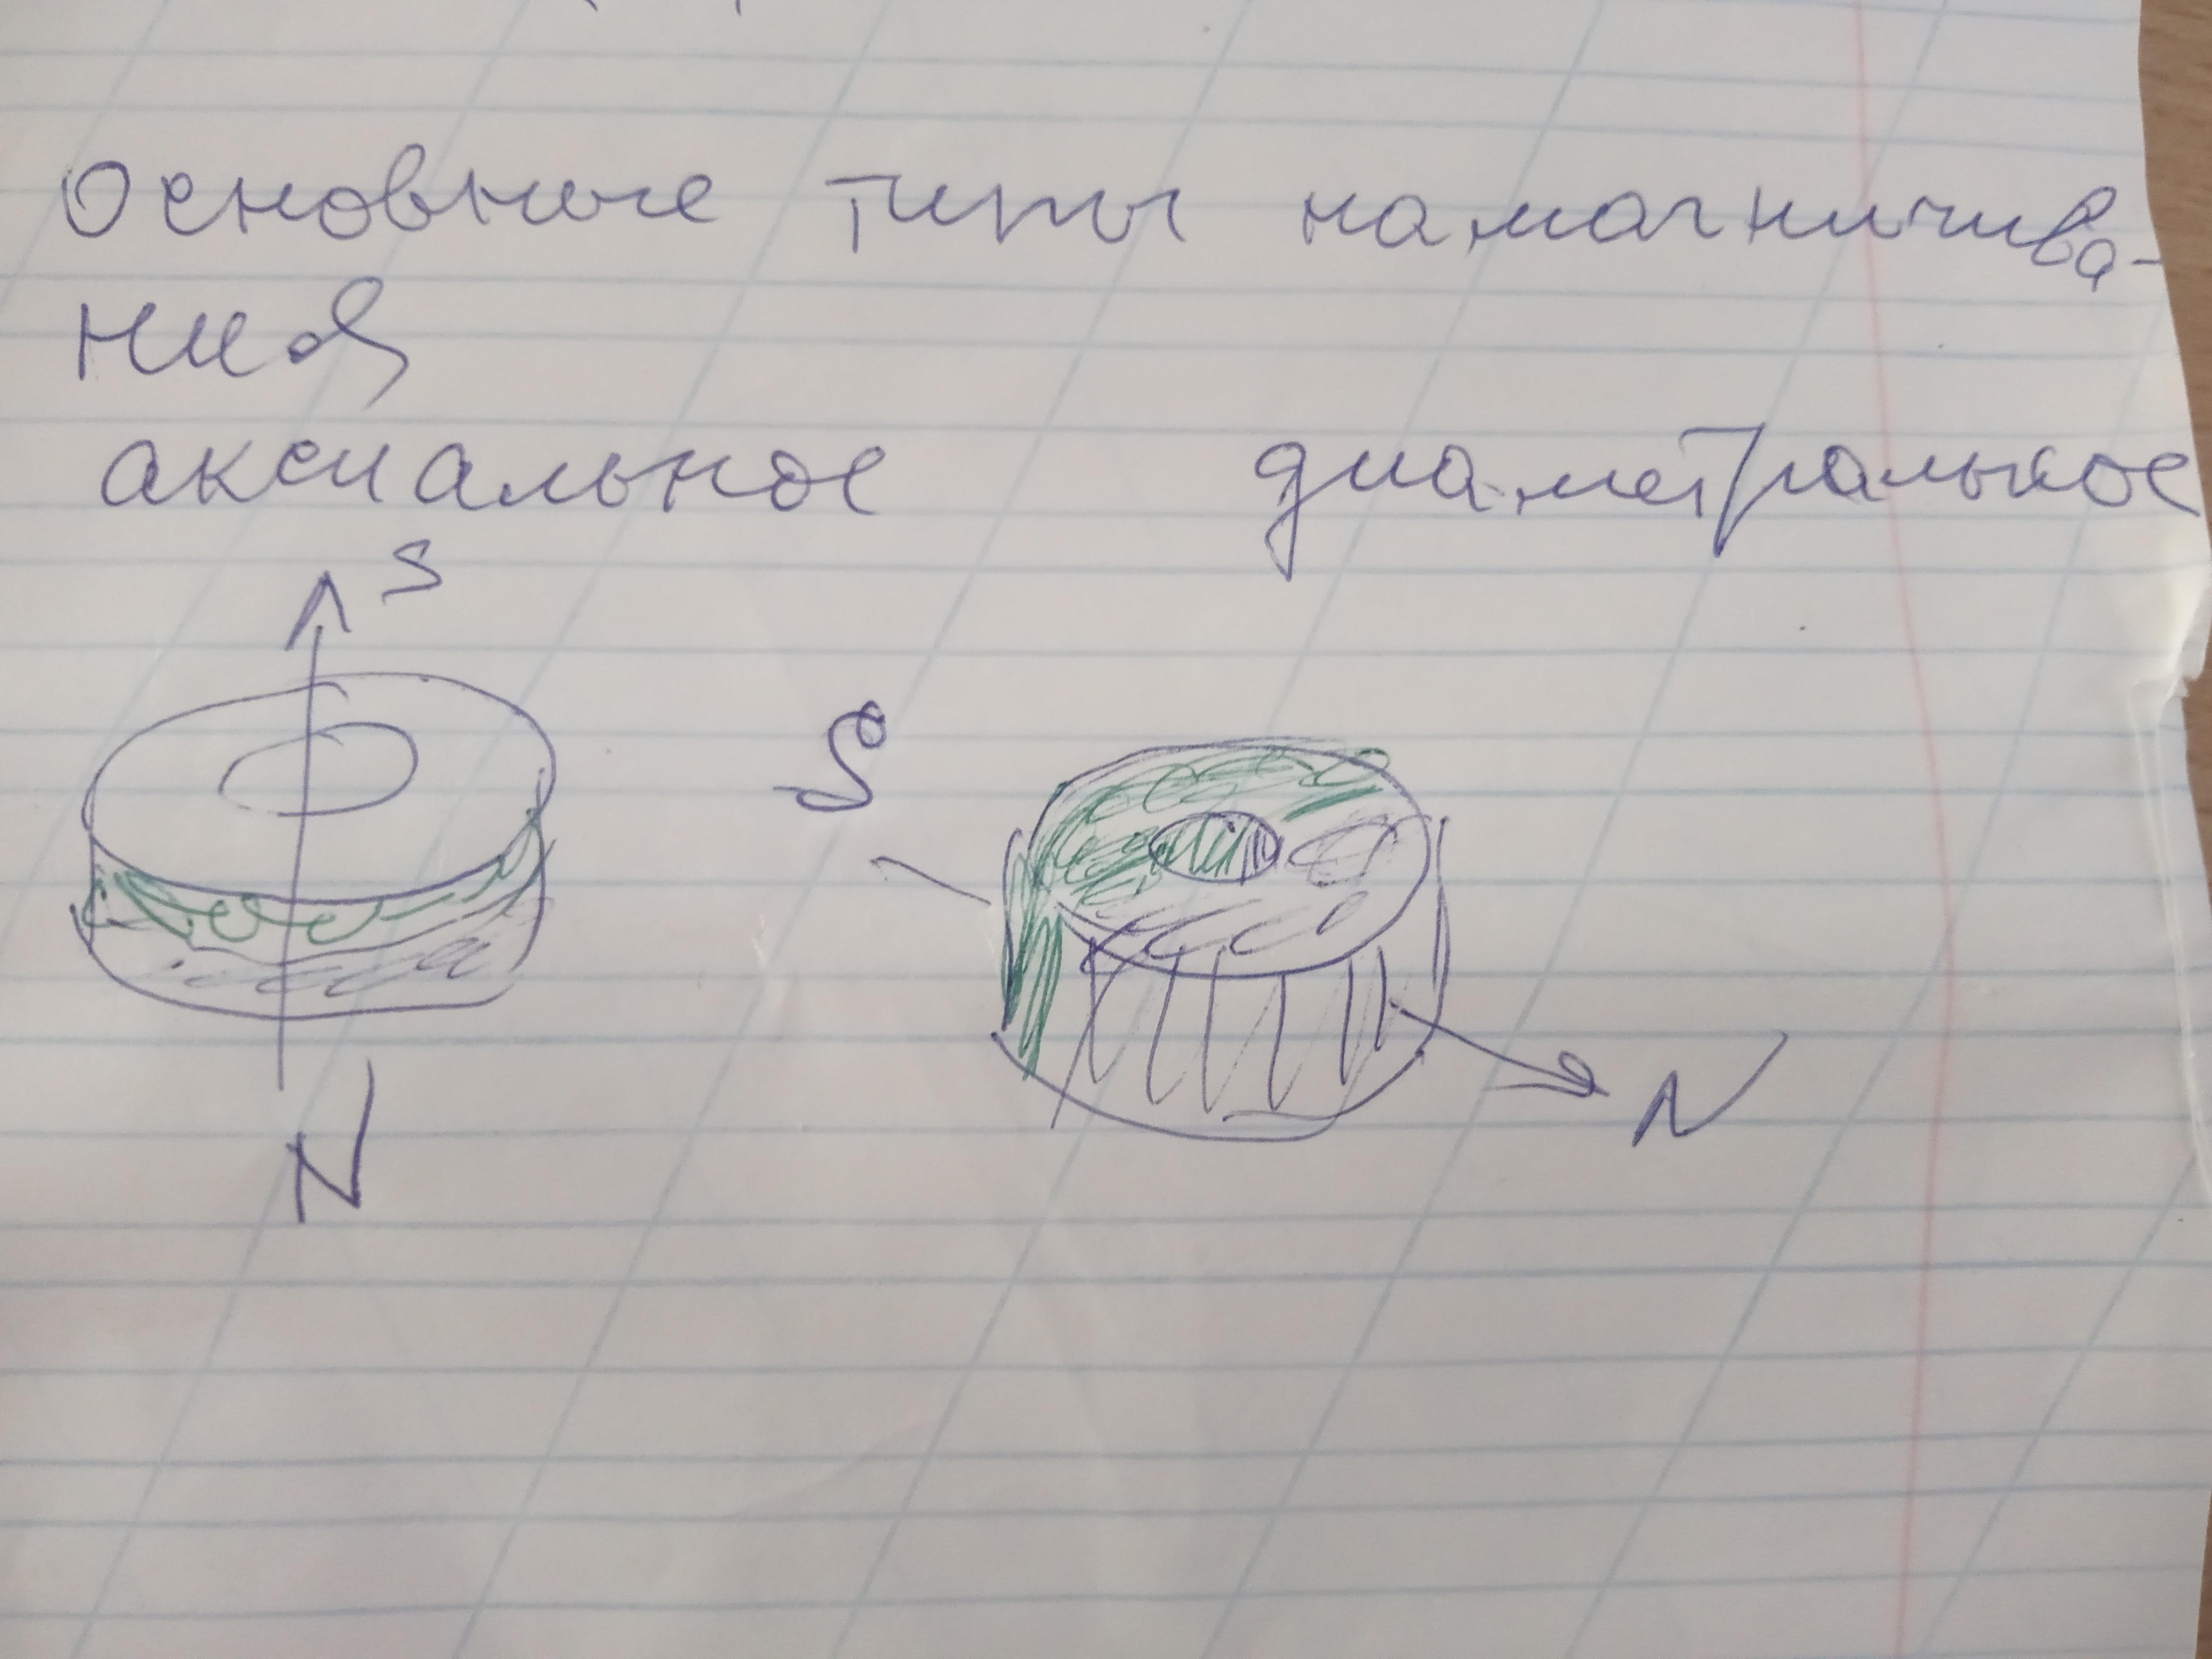 Основные типы намагничива-
ния
аксиальное диаметральное
S
S
N
N